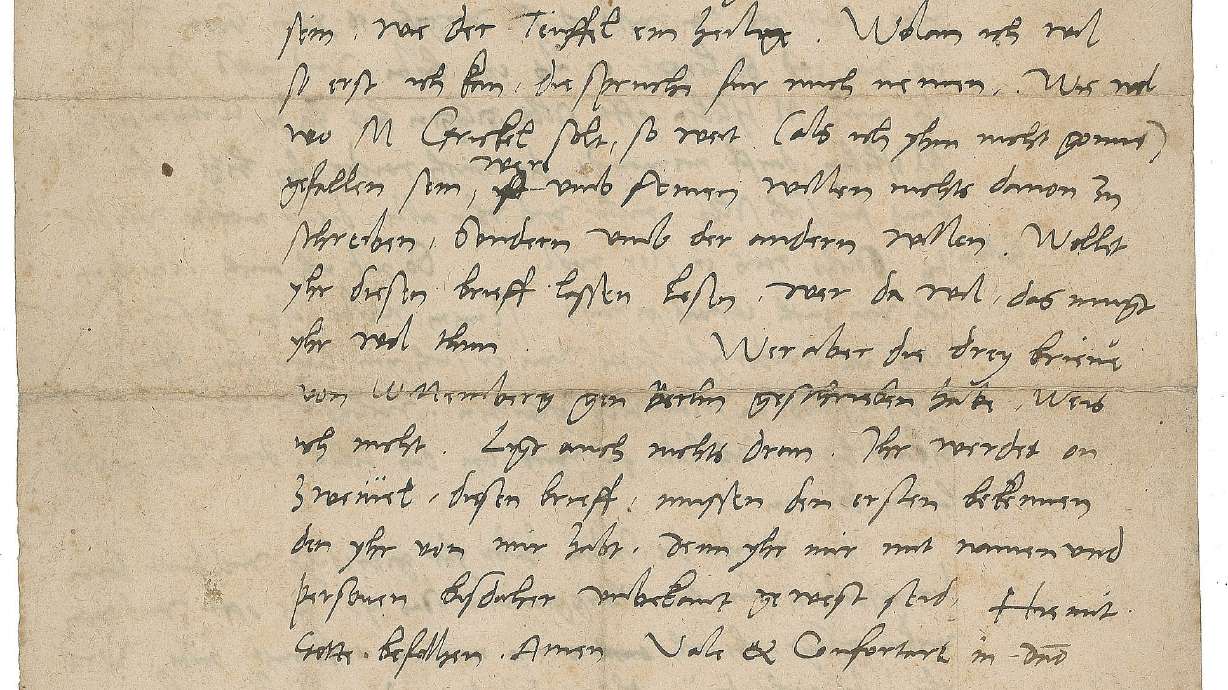 sein, wie der Teuffel ein heilige. Wolan ich wil
so erst ich kan, die spruche fur mich nemen. Wie wol
wo M Grickel solt, so weit (als ich yhm nicht gonne)
gefallen sein, were umb seinen willen nichts davon zu
schreiben, Sondern umb der andern willen. Wollet
yhr diesen brieff lassen lesen, wer da wil, das mugt
yhr wol thun. Wer aber die drey brieve
von Wittemberg gen Berlin geschrieben habe, Weis
ich nicht. Ligt auch nichts dran. Ihr werdet on
zweivel, diesen brieff, mussen den ersten bekennen
den yhr von mir habt, denn yhr mir mit namen und
personen bisdaher unbekant gewest seid, Hiemit
Gotte befolhen. Amen Vale & Confortare in dno